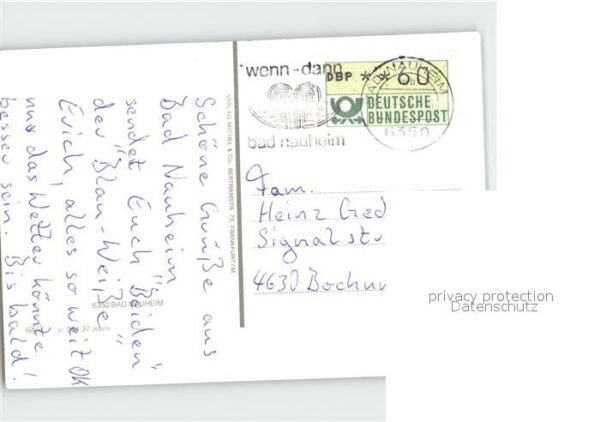 Schöne Grüße aus
Bad Nauheim
sendet Euch "Beiden"
der "Blau-Weiße"
Erich, alles soweit OK
nur das Wetter könnte
besser sein. Bis bald!
6350 BAD NAUHEIM
VERLAG MICHEL & CO., BERTRAMSTR. 73, FRANKFURT/M.
wenn-dann
bad nauheim
DBP * * 60
DEUTSCHE
BUNDESPOST
BAD NAUHEIM
6350
Fam.
Heinz Gred
Signalstr
4630 Bochum
privacy protection
Datenschutz